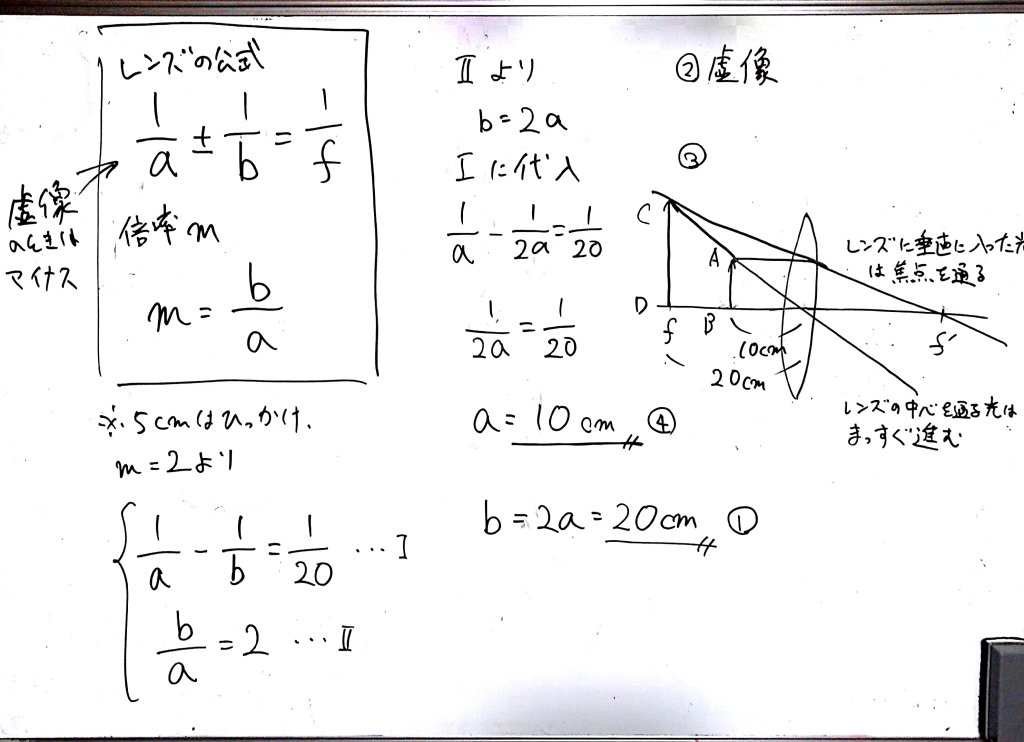 レンズの公式
1/a ± 1/b = 1/f
虚像
のときは
マイナス
倍率 m
m = b/a
※. 5cmはひっかけ.
m = 2より
1/a - 1/b = 1/20 … I
b/a = 2 … II
IIより
b = 2a
Iに代入
1/a - 1/2a = 1/20
1/2a = 1/20
a = 10cm ④
b = 2a = 20cm ①
②虚像
③
C
A
D
f
B
10cm
20cm
f′
レンズに垂直に入った光
は焦点を通る
レンズの中心を通る光は
まっすぐ進む